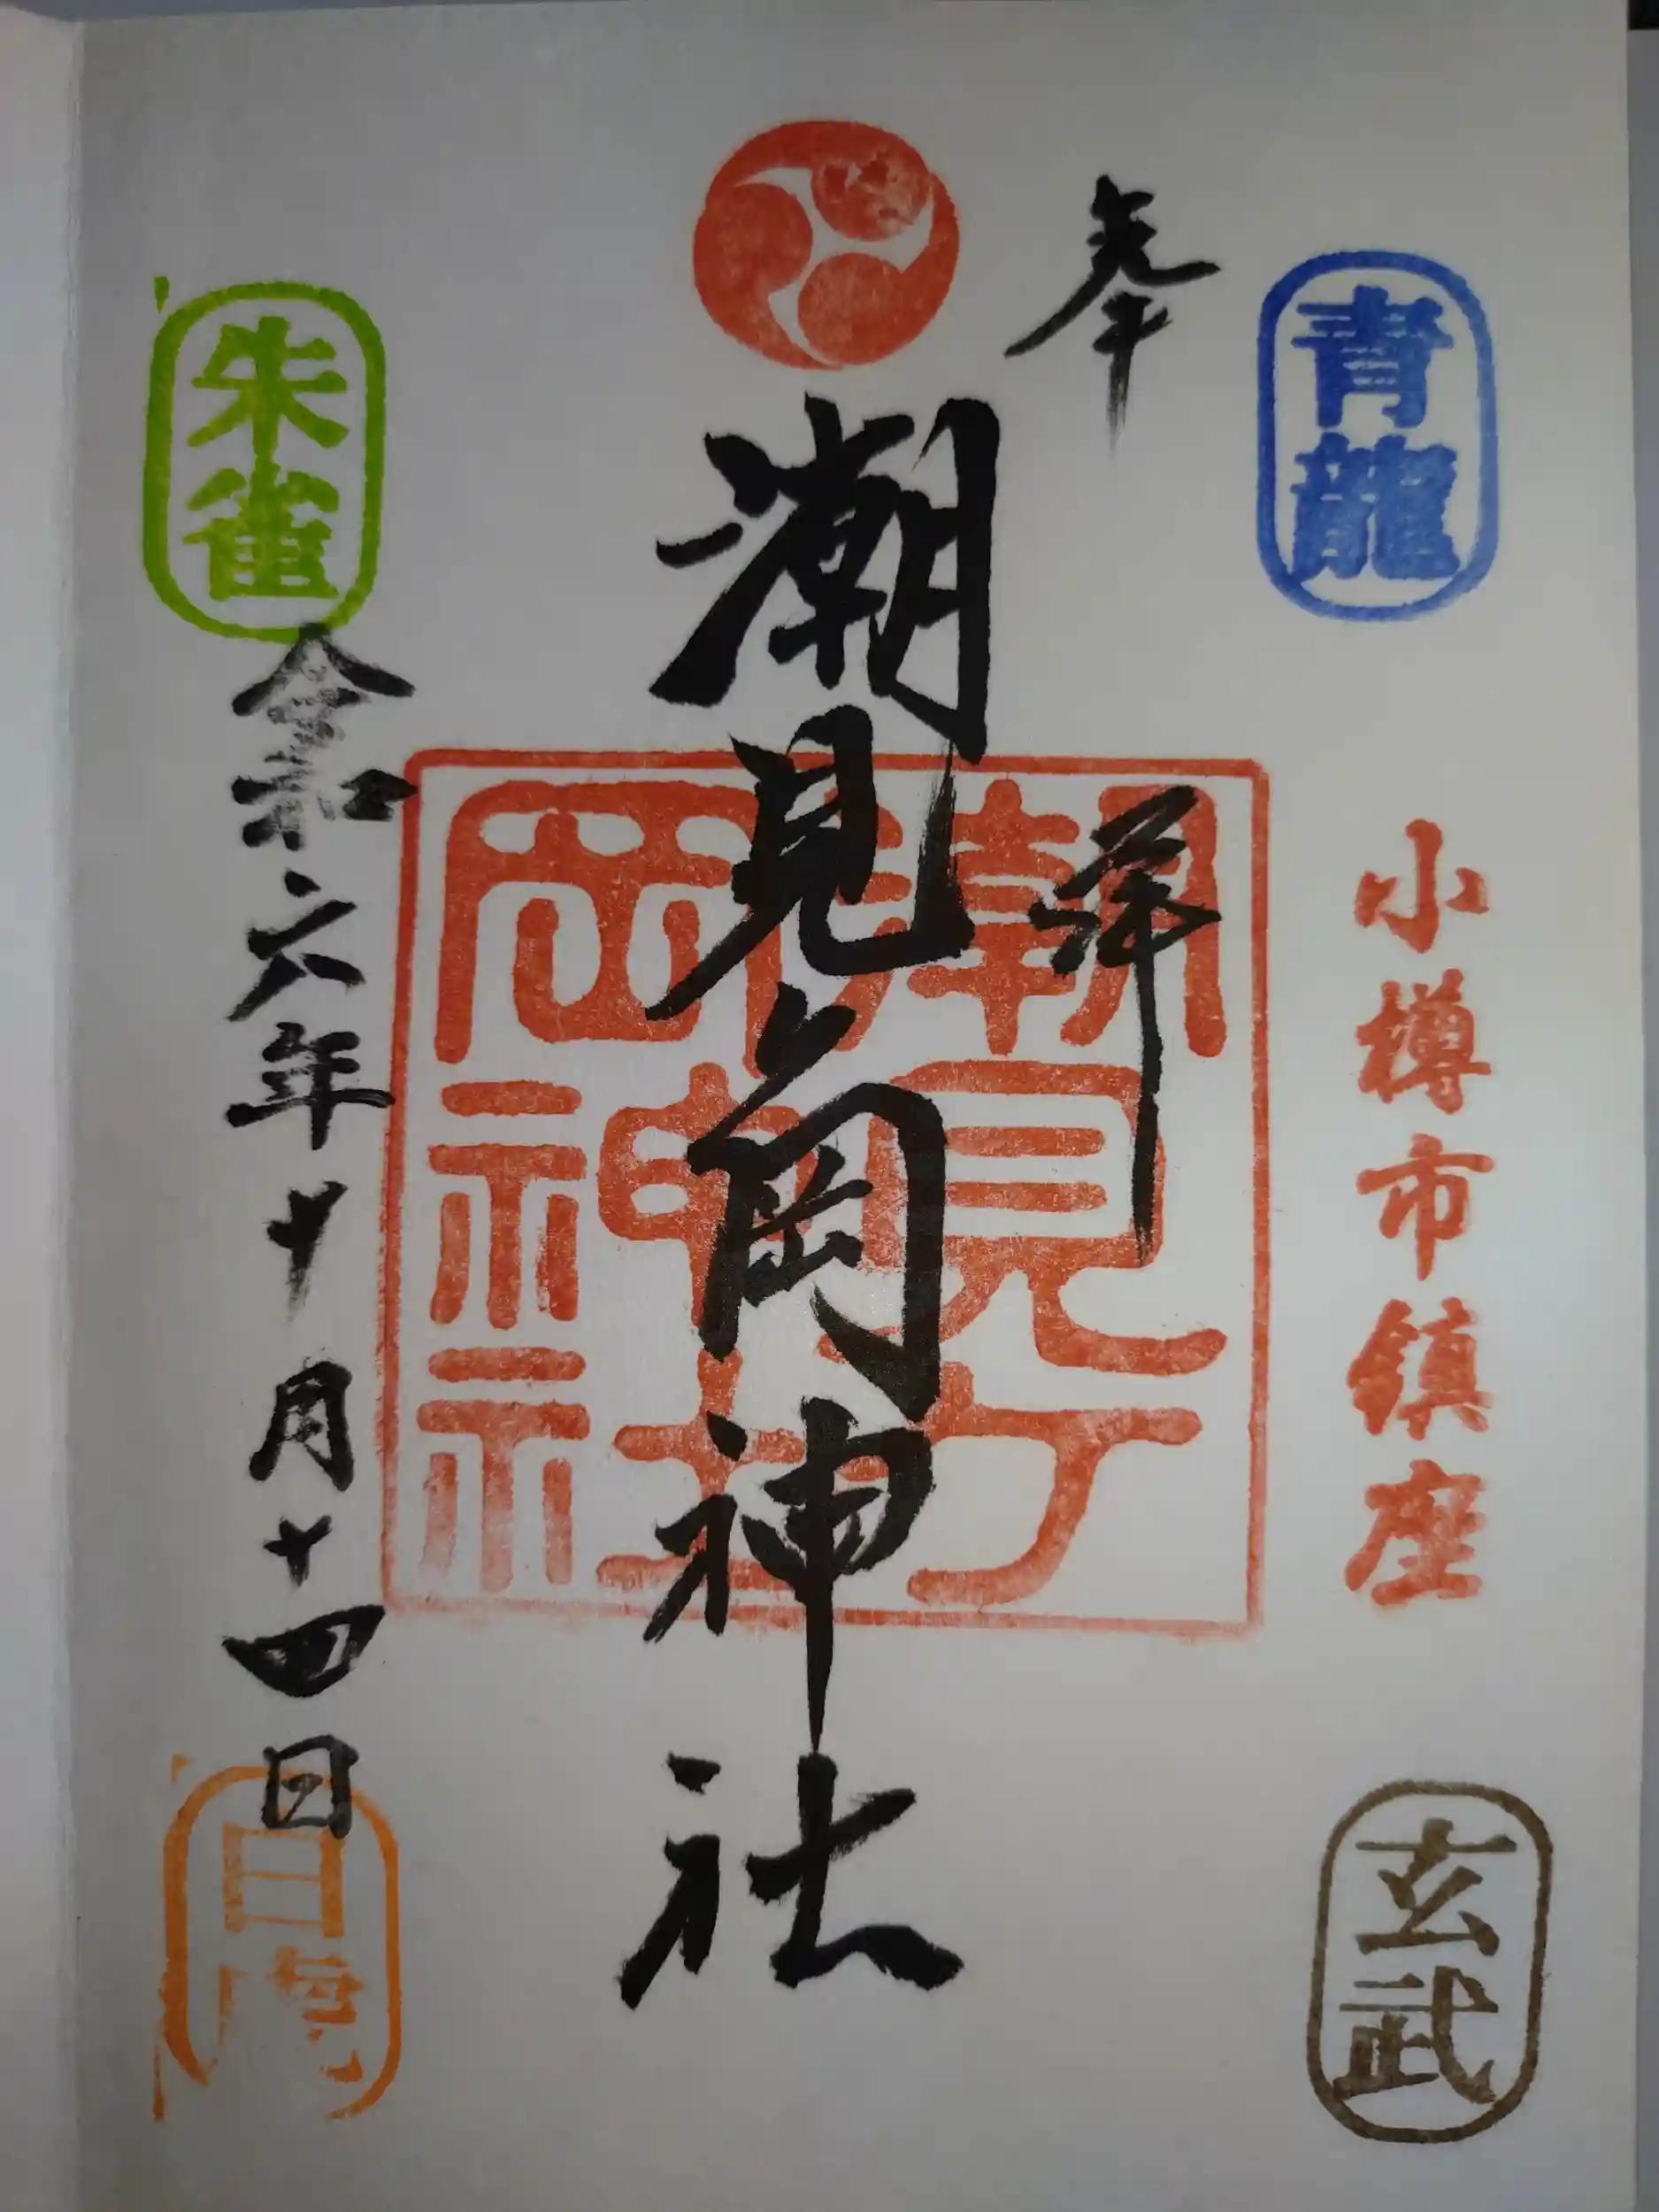 青龍
奉
拝
小樽市鎮座
玄武
潮見ヶ岡神社
潮見ヶ岡神社
朱雀
令和六年十月十四日
白虎